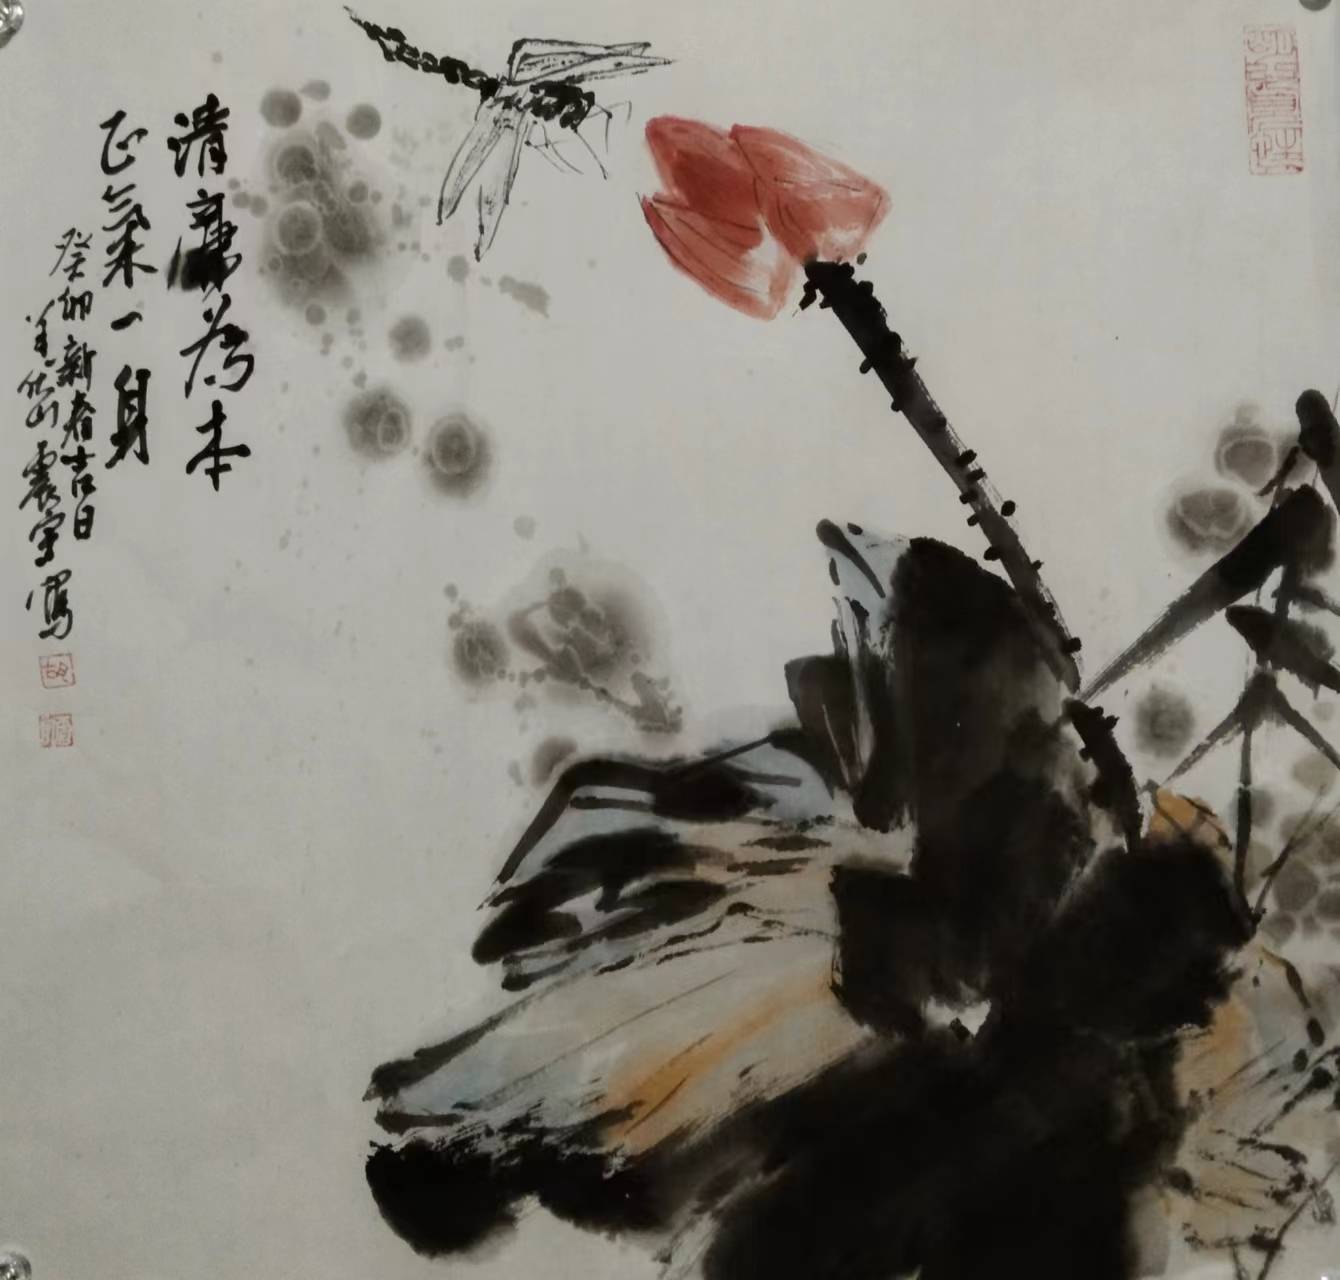 清廉為本
正氣一身
癸卯新春吉日
震宇寫
胡